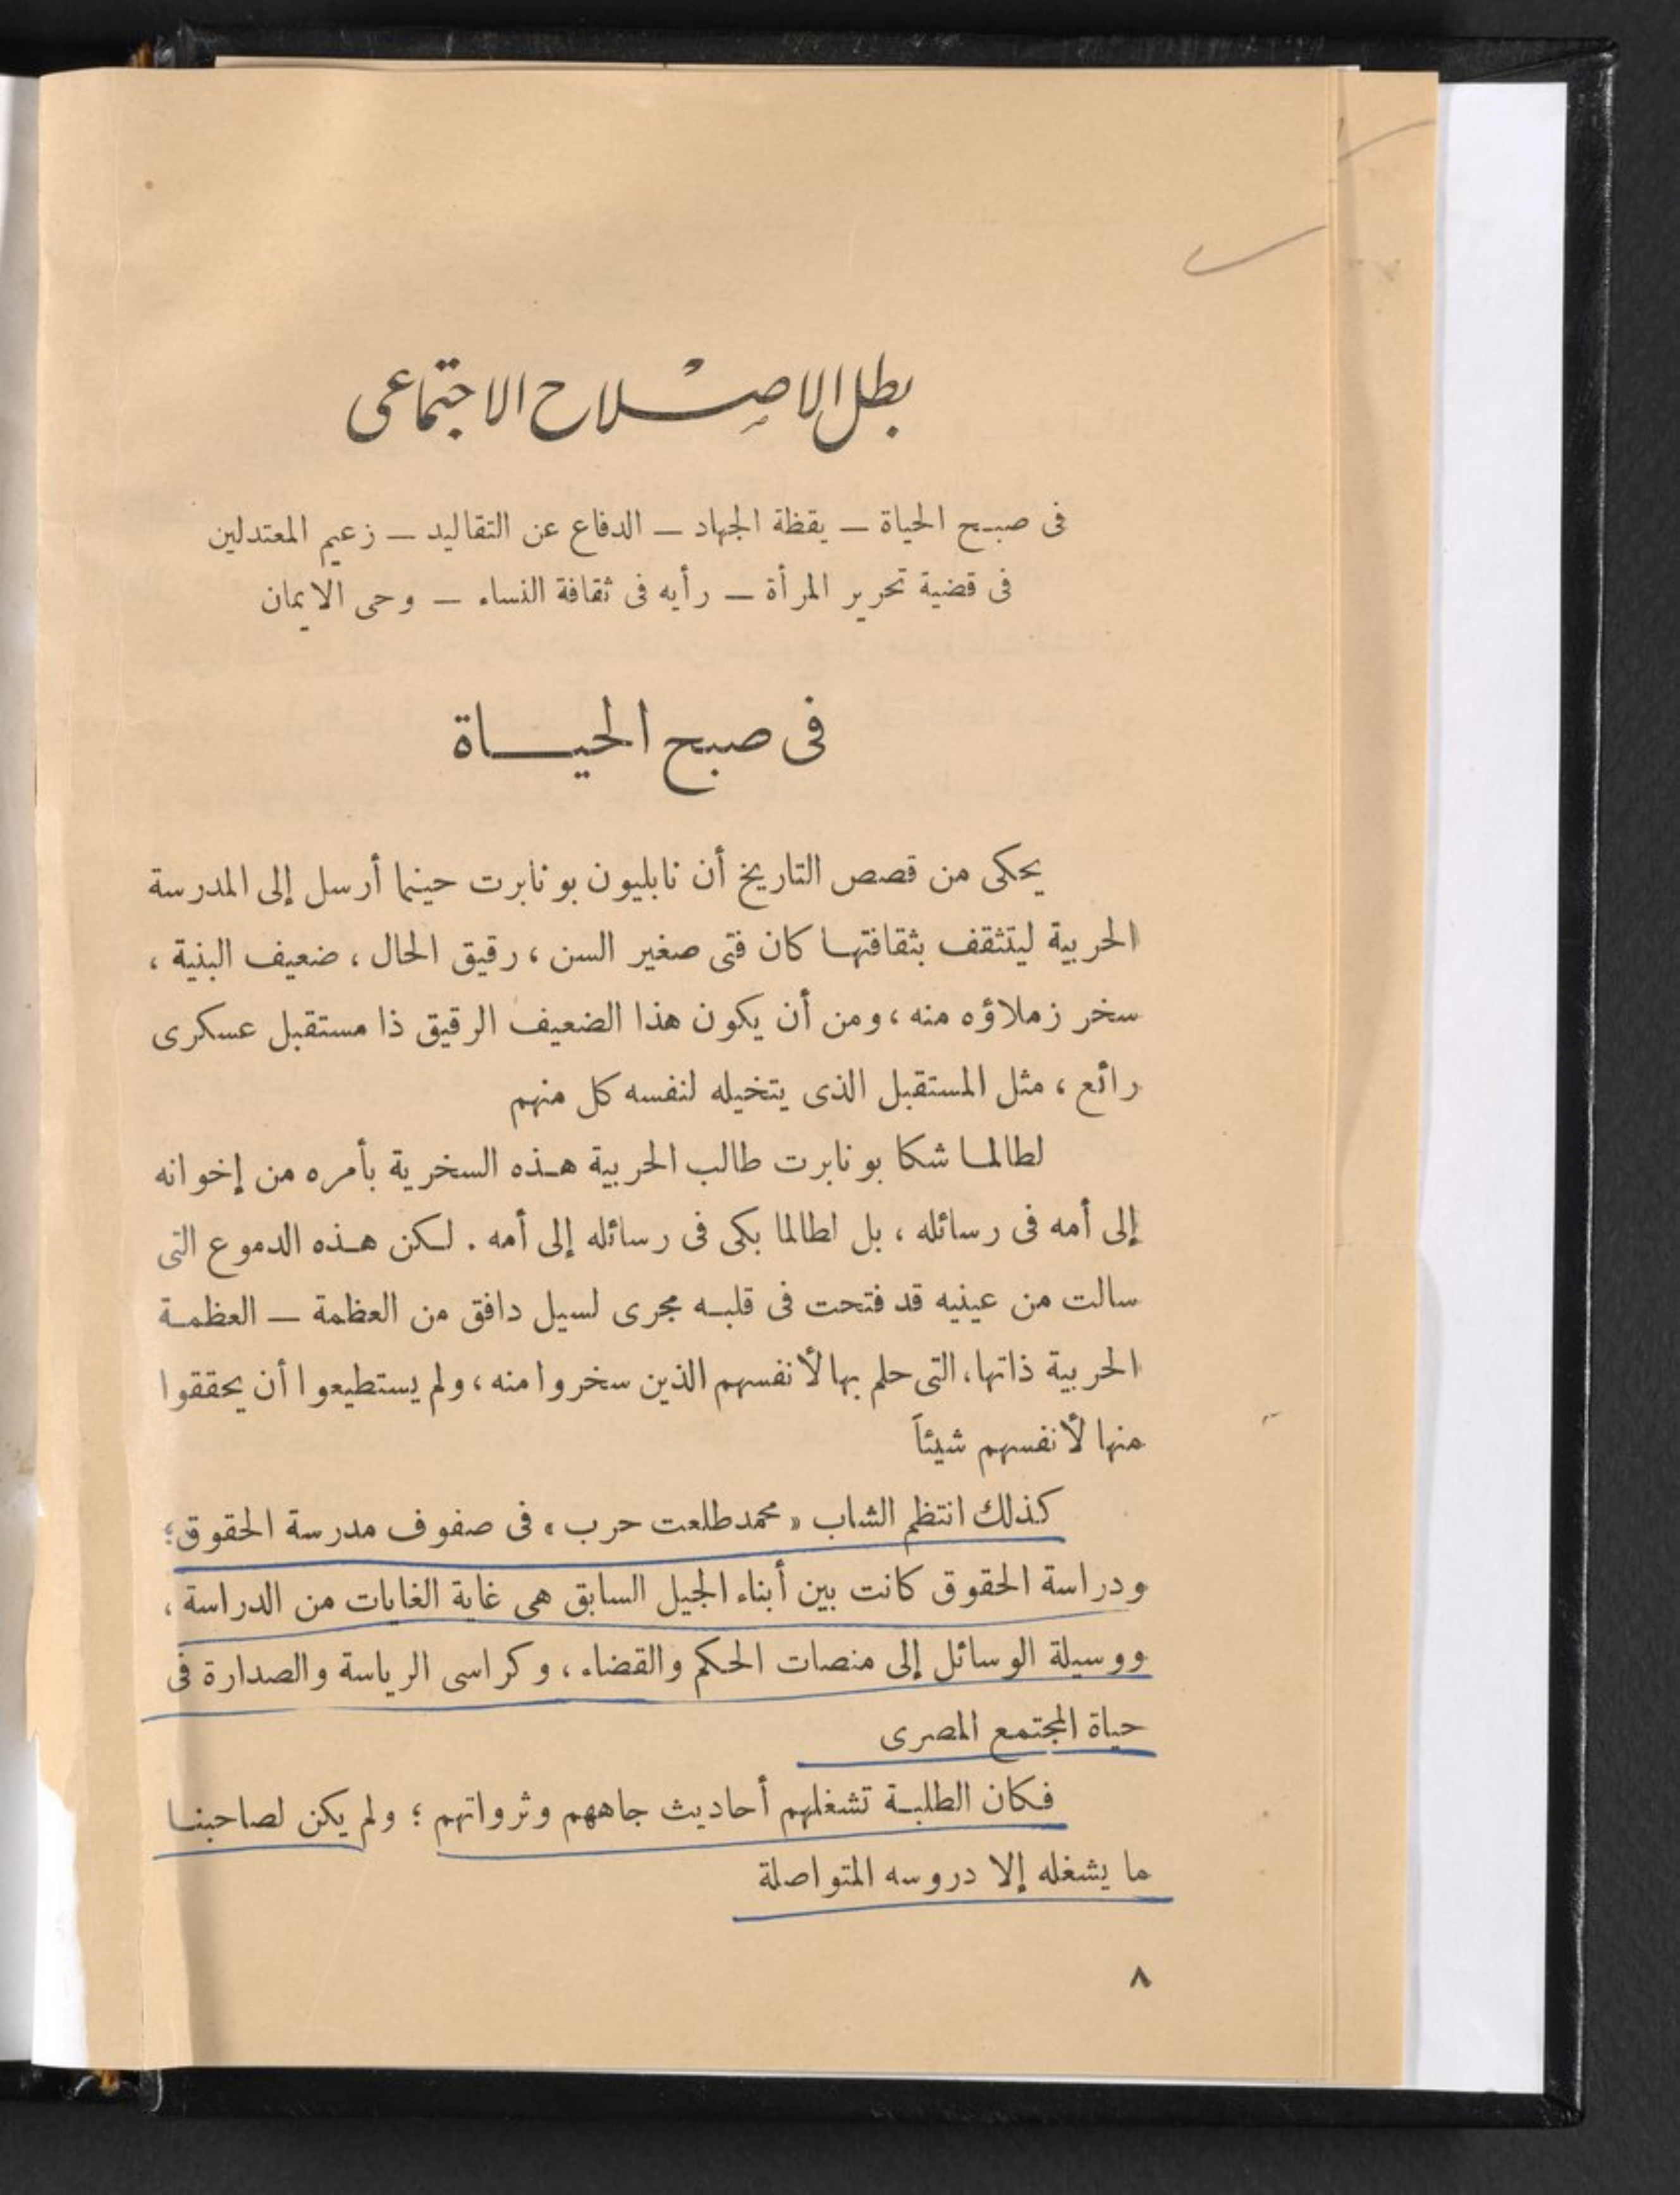 بطل الاصلاح الاجتماعى
فى صبح الحياة — يقظة الجهاد — الدفاع عن التقاليد — زعيم المعتدلين
فى قضية تحرير المرأة — رأيه فى ثقافة النساء — وحى الايمان
فى صبح الحياة
يحكى من قصص التاريخ أن نابليون بونابرت حينما أرسل إلى المدرسة
الحربية ليتثقف بثقافتها كان فتى صغير السن ، رقيق الحال ، ضعيف البنية ،
سخر زملاؤه منه ، ومن أن يكون هذا الضعيف الرقيق ذا مستقبل عسكرى
رائع ، مثل المستقبل الذى يتخيله لنفسه كل منهم
لطالما شكا بونابرت طالب الحربية هذه السخرية بأمره من إخوانه
إلى أمه فى رسائله ، بل لطالما بكى فى رسائله إلى أمه . لكن هذه الدموع التى
سالت من عينيه قد فتحت فى قلبه مجرى لسيل دافق من العظمة — العظمة
الحربية ذاتها ، التى حلم بها لأنفسهم الذين سخروا منه ، ولم يستطيعوا أن يحققوا
منها لأنفسهم شيئاً
كذلك انتظم الشاب « محمد طلعت حرب » فى صفوف مدرسة الحقوق ؛
ودراسة الحقوق كانت بين أبناء الجيل السابق هى غاية الغايات من الدراسة ،
ووسيلة الوسائل إلى منصات الحكم والقضاء ، وكراسى الرياسة والصدارة فى
حياة المجتمع المصرى
فكان الطلبة تشغلهم أحاديث جاههم وثرواتهم ؛ ولم يكن لصاحبنا
ما يشغله إلا دروسه المتواصلة
٨